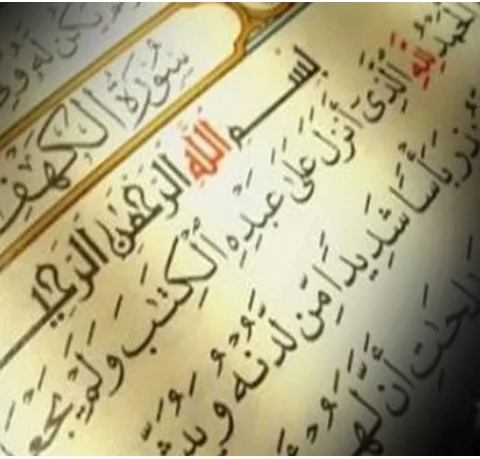 يَكُن لَّهُ
سُورَةُ الْكَهْفِ
بِسْمِ اللَّهِ الرَّحْمَٰنِ الرَّحِيمِ
الْحَمْدُ لِلَّهِ الَّذِىٓ أَنزَلَ عَلَىٰ عَبْدِهِ الْكِتَٰبَ وَلَمْ يَجْعَ
نذِرَ بَأْسًا شَدِيدًا مِّن لَّدُنْهُ وَيُبَشِّ
لِحَٰتِ أَنَّ لَهُ